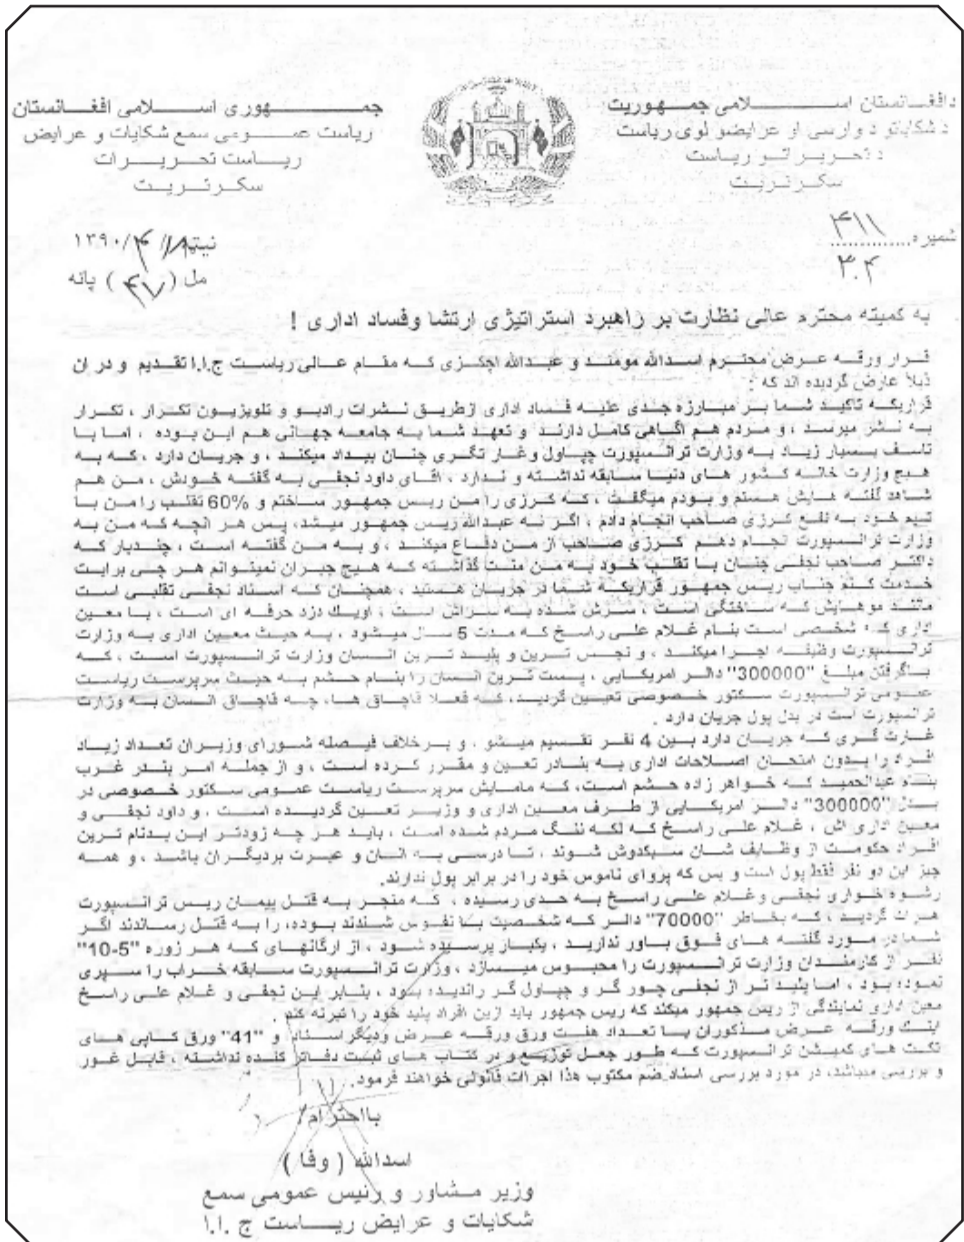 جمــهوری اســلامی افغـانستان
ریاست عمـومی سمع شکایات و عرایض
ریــاست تحــریــرات
سکـرتـریـت
دافغـانستان اســلامی جمـهوریت
د شکایاتو د وارسی او عرایضو لوی ریاست
د تحـریـراتـو ریـاست
سکرتـریـت
نیټه / ۴ / ۱۳۹۰
مل (۴۷) پاڼه
شمیره ۴۱۱
۳۰۴
به کمیته محترم عالی نظارت بر راهبرد استراتیژی ارتشا وفساد اداری !
قـرار ورقـه عـرض محتـرم اسـدالله مومنـد و عبـدالله اچکـزی کـه مقـام عـالی ریاسـت ج.ا.ا تقـدیم و در ان
ذیلاً عارض گردیده اند که :
قراریکـه تاکیـد شـما بـر مبـارزه جـدی علیـه فسـاد اداری ازطریـق نـشرات رادیـو و تلویزیـون تکـرار ، تکـرار
به نـشر میرسـد ، و مـردم هـم اگـاهی کامـل دارنـد و تعهـد شـما بـه جامعـه جهـانی هـم ایـن بـوده ، امـا بـا
تاسـف بسـیار زیـاد بـه وزارت ترانـسپورت چپـاول وغـارتگـری چنـان بیـداد میکنـد ، و جریـان دارد ، کـه بـه
هیـچ وزارت خانـه کـشور هـای دنیـا سـابقه نداشـته و نـدارد ، اقـای داود نجفـی بـه گفتـه خـودش ، مـن هـم
شاهد گفتـه هـایش هسـتم و بـودم میگفـت ، کـه کـرزی را مـن ریـس جمهـور سـاختم و 60% تقلـب را مـن بـا
تیـم خـود بـه نفـع کـرزی صـاحب انجـام دادم ، اگـر نـه عبـدالله ریـس جمهـور میشـد، پـس هـر انچـه کـه مـن بـه
وزارت ترانـسپورت انجـام دهـم کـرزی صـاحب از مـن دفـاع میکنـد ، و بـه مـن گفتـه اسـت ، چنـدبار کـه
داکتـر صـاحب نجفـی چنـان بـا تقلـب خـود بـه مـن منـت گذاشـته کـه هیـچ جبـران نمیتـوانم هـر چـی برایـت
خدمت کـنم جنـاب ریـس جمهـور قراریکـه شـما در جریـان هسـتید ، همچنـان کـه اسـناد نجفـی تقلبـی اسـت
ماننـد موهـایش کـه سـاختگی اسـت ، شـده بـه سـرش اسـت ، اویـک دزد حرفـه ای اسـت ، بـا معیـن
اداری کـه شخصـی اسـت بنـام غـلام علـی راسـخ کـه مـدت 5 سـال میشـود ، بـه حیـث معیـن اداری بـه وزارت
ترانـسپورت وظیفـه اجـرا میکنـد ، و نجـس تـرین و پلیـد تـرین انـسان وزارت ترانـسپورت اسـت ، کـه
بـاگرفتن مبلـغ "300000" دالـر امریکـایی ، پسـت تـرین انـسان را بنـام حشـم بـه حیـث سرپرسـت ریاسـت
عمـومی ترانـسپورت سـکتور خصـوصی تعیـین گردیـد، کـه فعـلا قاچـاق هـا، چـه قاچـاق انـسان بـه وزارت
ترانسپورت است در بدل پول جریان دارد .
غـارت گـری کـه جریـان دارد بـین 4 نفـر تقـسیم میـشو ، و بـرخلاف فیـصله شـورای وزیـران تعـداد زیـاد
افـراد را بـدون امتحـان اصـلاحات اداری بـه بنـادر تعـین و مقـرر کـرده اسـت ، و از جملـه امـر بنـدر غـرب
بنـام عبدالحمیـد کـه خـواهر زاده حشـم اسـت، کـه مامـایش سرپرسـت ریاسـت عمـومی سـکتور خصـوصی در
بـدل "300000" دالـر امریکـایی از طـرف معـین اداری و وزیـر تعـین گردیـده اسـت ، و داود نجفـی و
معـین اداری اش ، غـلام علـی راسـخ کـه لکـه ننـگ مـردم شـده اسـت ، بایـد هـر چـه زودتـر ایـن بـدنام تـرین
افـراد حکومـت از وظـایف شـان سـبکدوش شـوند ، تـا درسـی بـه انـان و عبـرت بردیگـران باشـد ، و همـه
چیز این دو نفر فقط پول است و بس که پروای ناموس خود را در برابر پول ندارند.
رشـوه خـواری نجفـی وغـلام علـی راسـخ بـه حـدی رسـیده ، کـه منجـر بـه قتـل پیمـان ریـس ترانـسپورت
هـرات گردیـد ، کـه بخـاطر "70000" دالـر کـه شخـصیت بـا نفـوس شـندند بـوده، را بـه قتـل رسـاندند اگـر
شـما در مـورد گفتـه هـای فـوق بـاور نداریـد ، یکبـار پرسـیده شـود ، از ارگانهـای کـه هـر روزه "5-10"
نفـر از کارمنـدان وزارت ترانـسپورت را محبـوس میـسازد ، وزارت ترانـسپورت سـابقه خـراب را سـپری
نمـوده بـود ، امـا پلیـد تـر از نجفـی چـور گـر و چپـاول گـر راندیـده بـود ، بنـابر ایـن نجفـی و غـلام علـی راسـخ
معین اداری نمایندگی از ریس جمهور میکند که ریس جمهور باید ازین افراد پلید خود را تبرئه کند .
اینـک ورقـه عـرض مـذکوران بـا تعـداد هفـت ورق ورقـه عـرض ودیگـر اسـناد و "41" ورق کـاپی هـای
تکـت هـای کمیـشن ترانـسپورت کـه طـور جعـل توزیـع و در کتـاب هـای ثبـت دفـاتر کننـده نداشـته ، قابـل غـور
و بررسی میباشد، در مورد بررسی اسناد ضم مکتوب هذا اجراات قانونی خواهند فرمود.
بااحترام/
اسدالله ( وفا )
وزیر مـشاور و رئیس عمومی سمع
شکایات و عرایض ریــاست ج .ا.ا